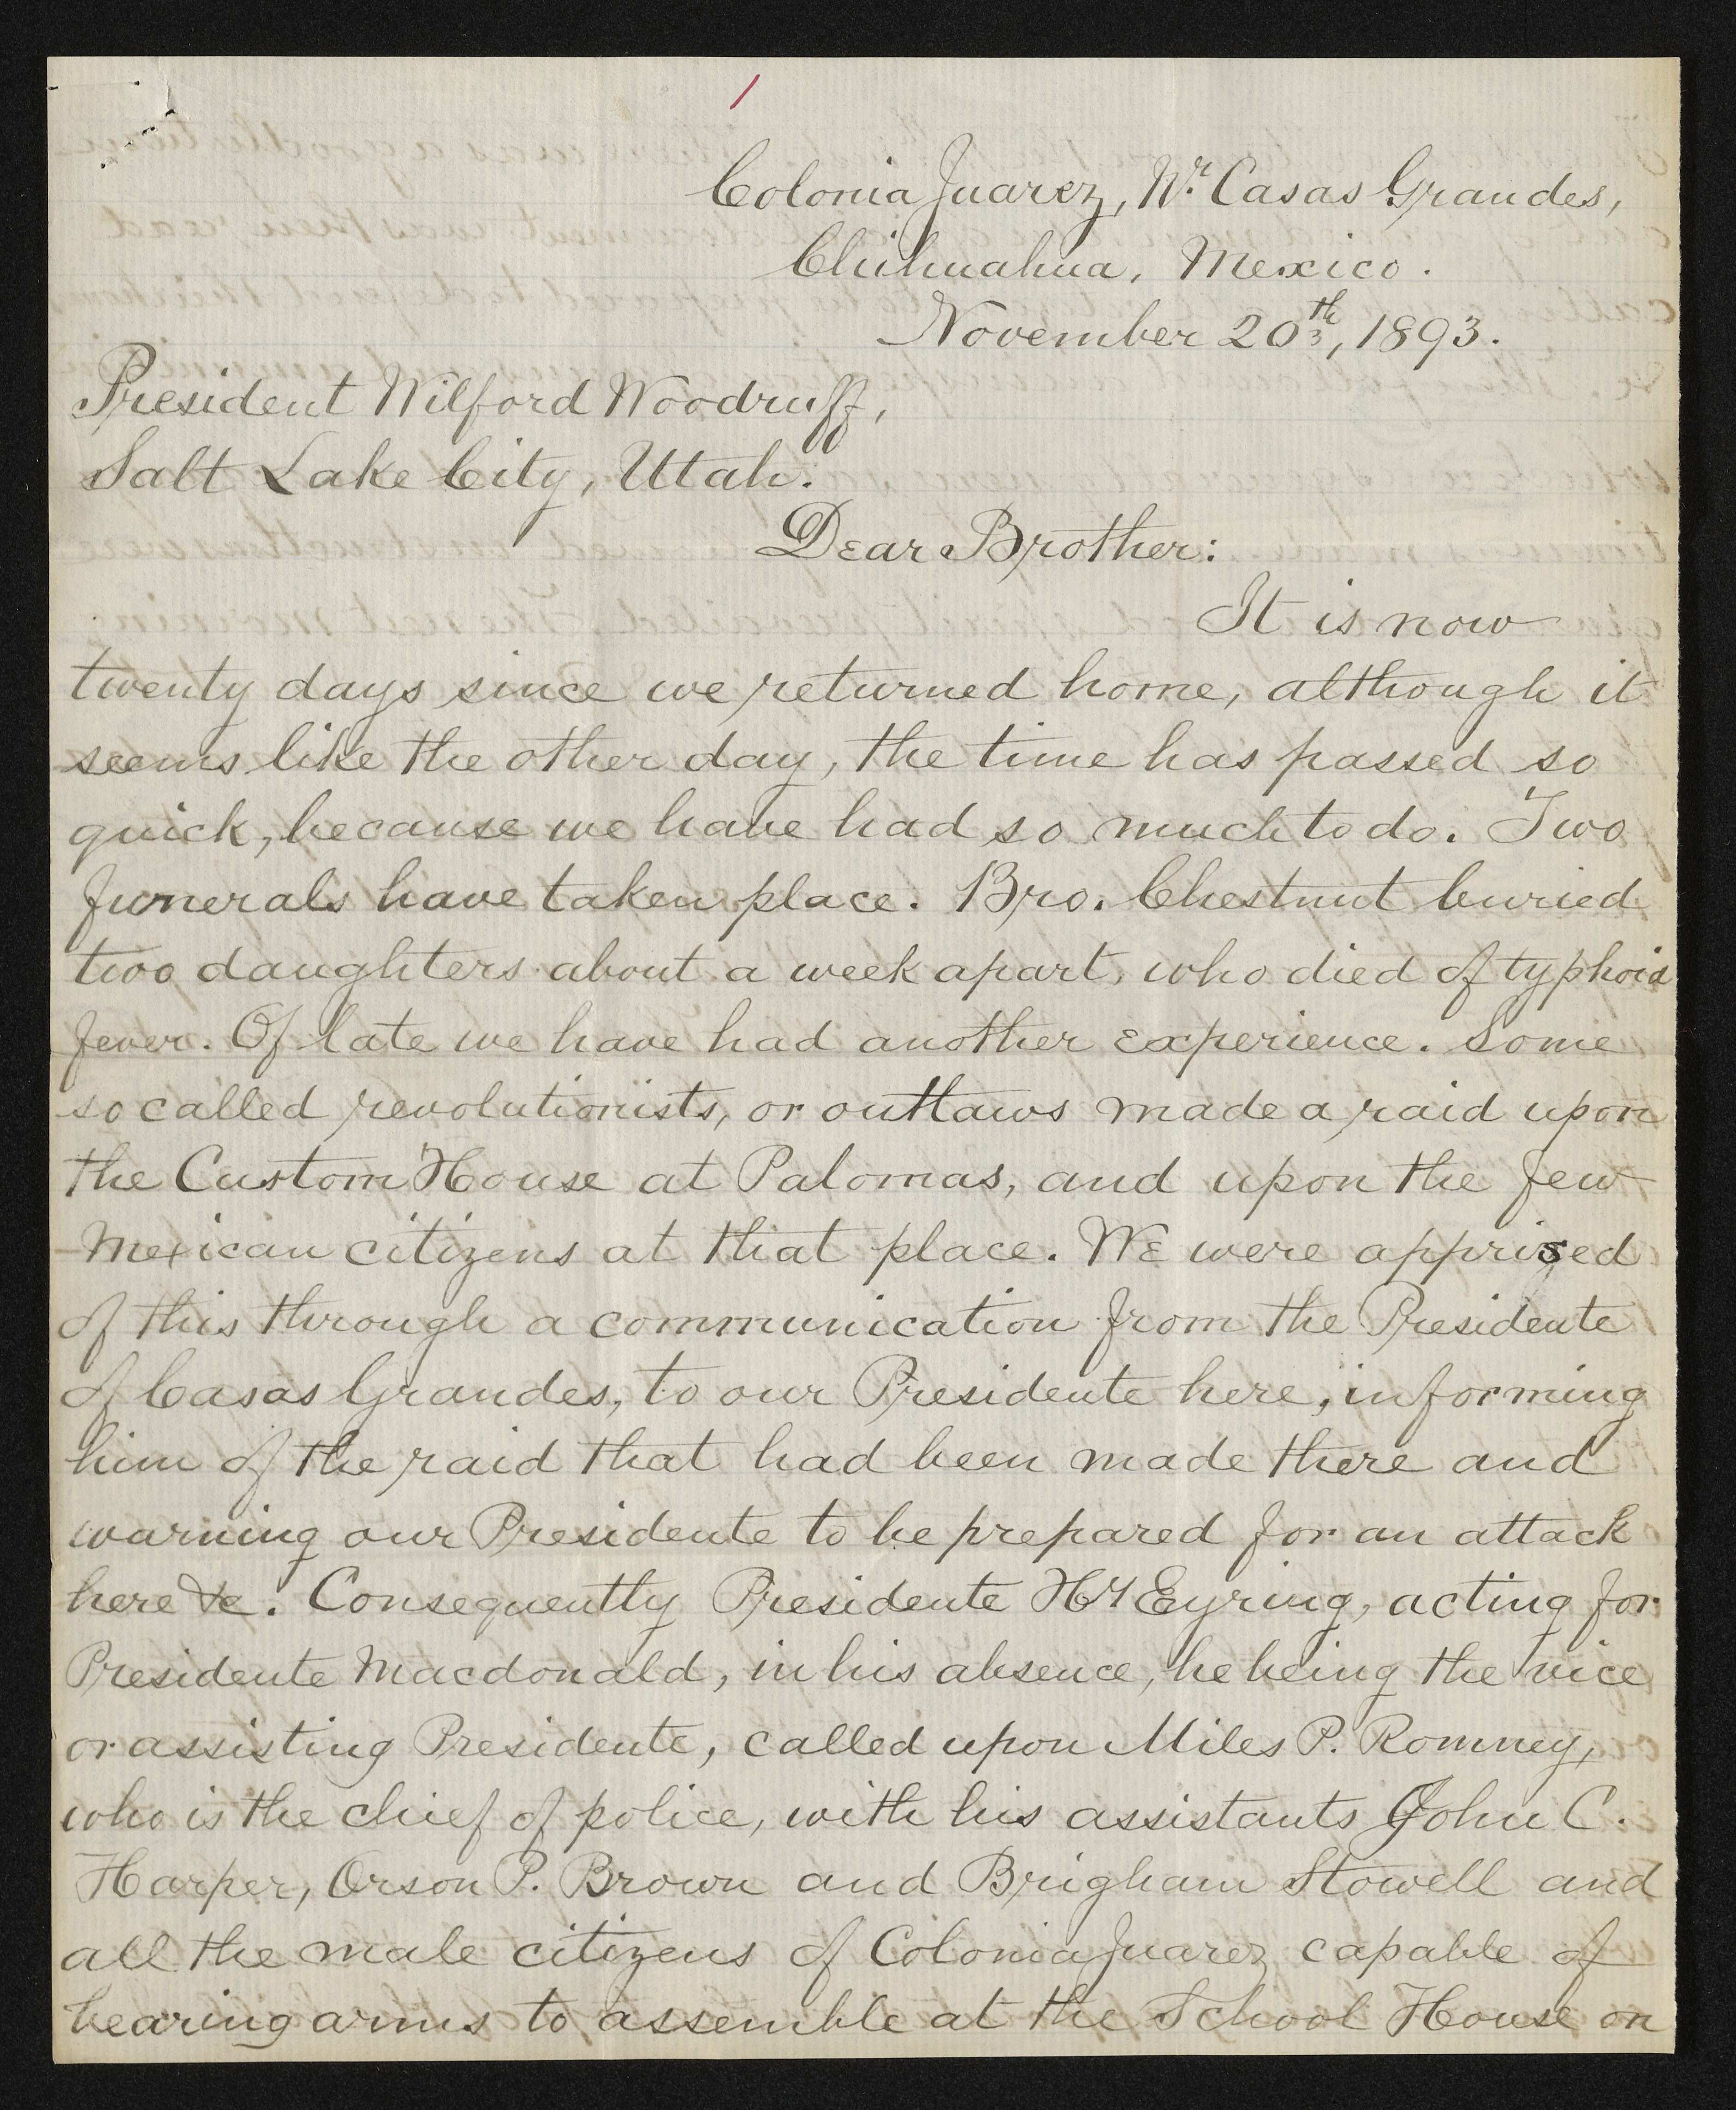 /
Colonia Juarez, Nr. Casas Grandes,
Chihuahua, Mexico.
November 20th, 1893.
President Wilford Woodruff,
Salt Lake City, Utah.
Dear Brother:
It is now
twenty days since we returned home, although it
seems like the other day, the time has passed so
quick, because we have had so much to do. Two
funerals have taken place. Bro. Chestnut buried
two daughters about a week apart, who died of typhoid
fever. Of late we have had another experience. Some
so called revolutionists, or outlaws made a raid upon
the Custom House at Palomas, and upon the few
Mexican citizens at that place. We were apprised
of this through a communication from the Presidente
of Casas Grandes, to our Presidente here, informing
him of the raid that had been made there and
warning our Presidente to be prepared for an attack
here &c. Consequently Presidente Hy Eyring, acting for
Presidente Macdonald, in his absence, he being the vice
or assisting Presidente, called upon Miles P. Romney,
who is the chief of police, with his assistants John C.
Harper, Orson P. Brown and Brigham Stowell and
all the male citizens of Colonia Juarez capable of
bearing arms to assemble at the School House on